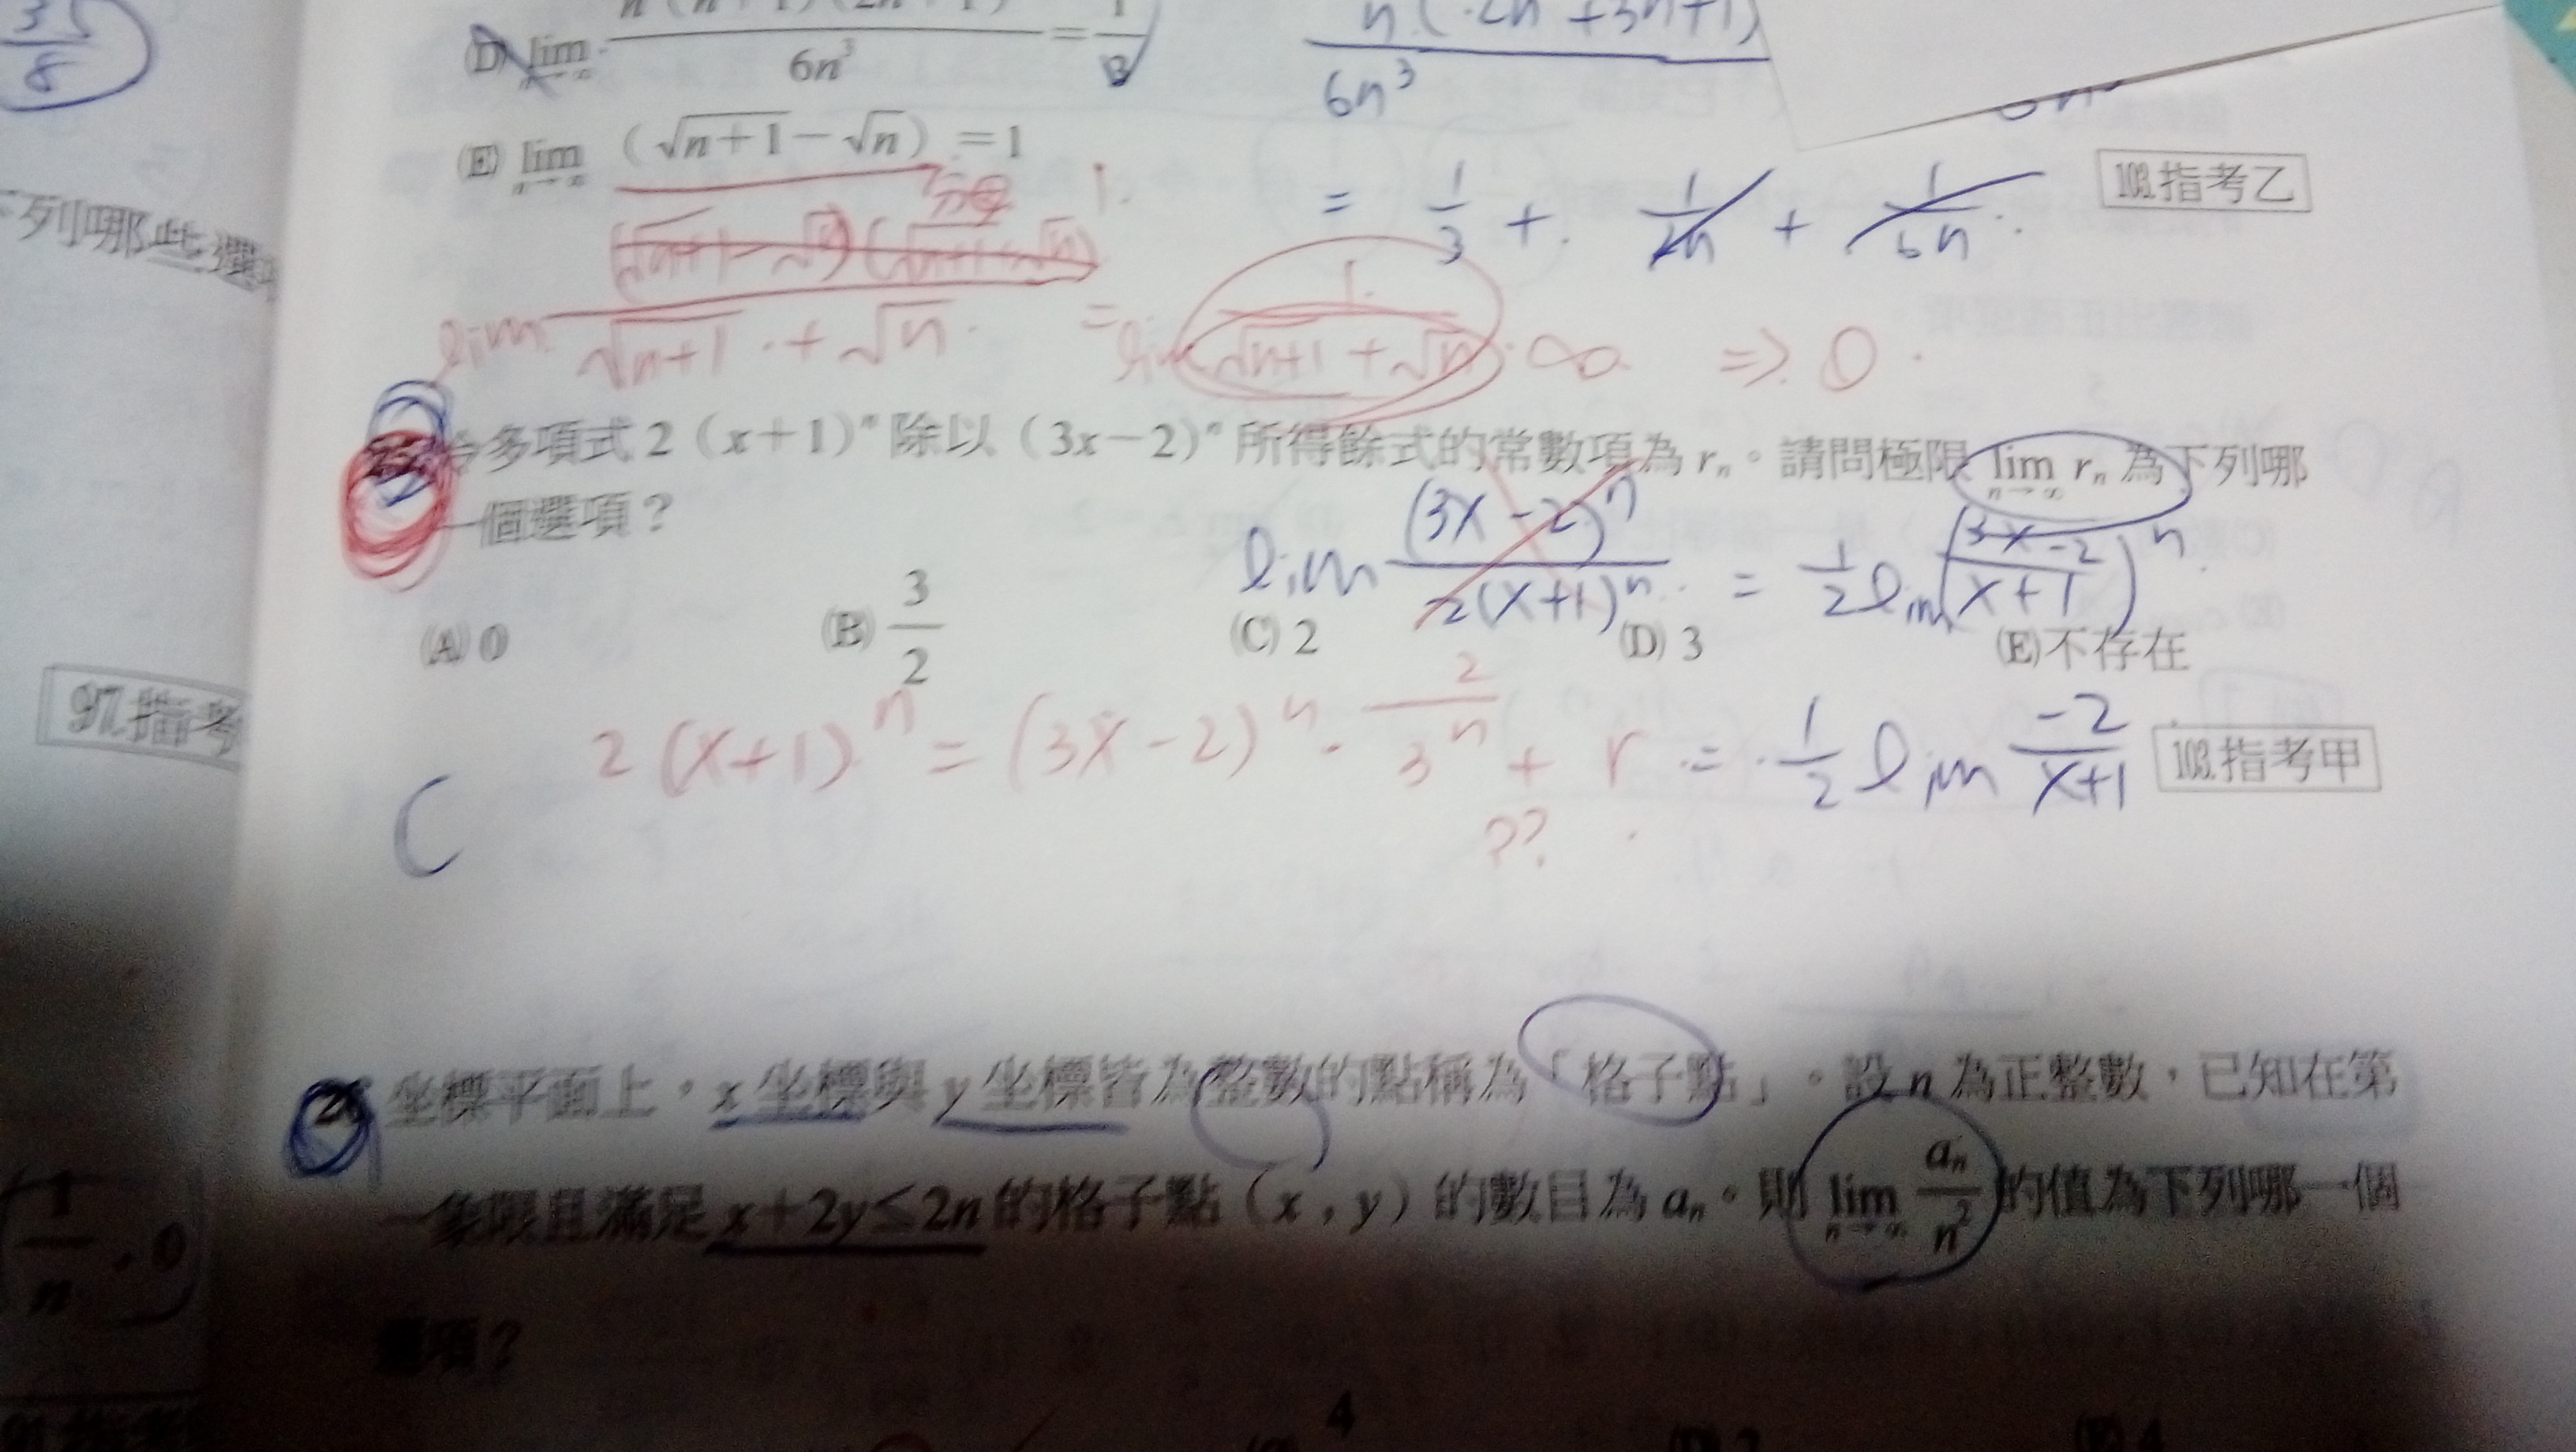 35/8
(D) lim n→∞ n(n+1)(2n+1)/6n³ = 1/3
n(2n²+3n+1)/6n³
(E) lim n→∞ (√n+1 − √n) = 1
分母
1
= 1/3 + 1/2n + 1/6n
103.指考乙
下列哪些選
lim (√n+1 − √n)(√n+1 + √n)/(√n+1 + √n) = lim 1/(√n+1 + √n) ∞ ⇒ 0
令多項式 2(x+1)ⁿ 除以 (3x−2)ⁿ 所得餘式的常數項為 rₙ。請問極限 lim n→∞ rₙ 為下列哪
一個選項?
lim (3x−2)ⁿ/2(x+1)ⁿ = 1/2 lim((3x−2)/(x+1))ⁿ
(A) 0 (B) 3/2 (C) 2 (D) 3 (E)不存在
97.指考
2(x+1)ⁿ = (3x−2)ⁿ · 2/3ⁿ + r
= 1/2 lim −2/(x+1)
103.指考甲
??
C
坐標平面上,x 坐標與 y 坐標皆為整數的點稱為「格子點」。設 n 為正整數,已知在第
一象限且滿足 x+2y≤2n 的格子點(x , y)的數目為 aₙ。則 lim n→∞ aₙ/n² 的值為下列哪一個
選項?
1/n , 0
4